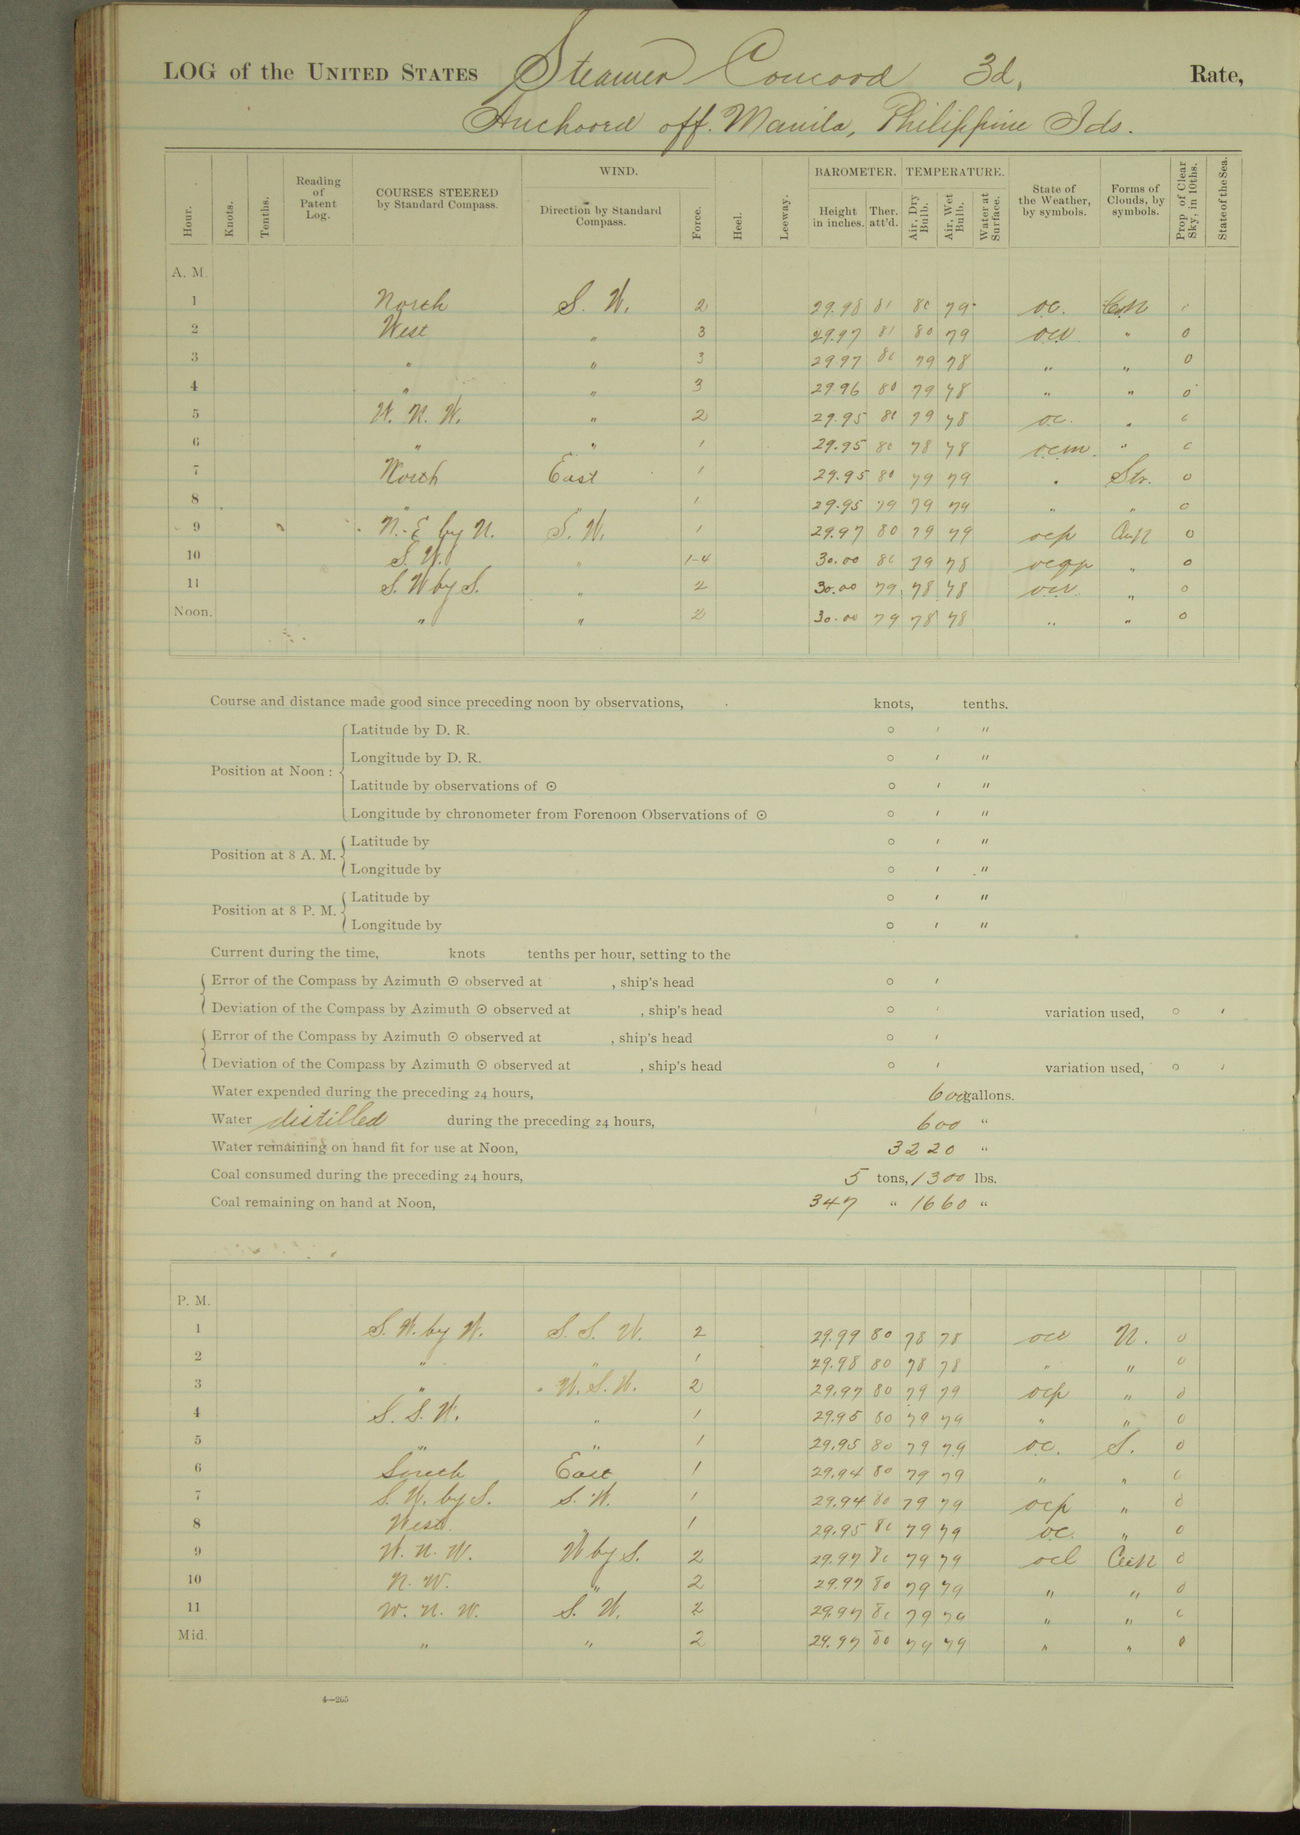 LOG of the UNITED STATES Steamer Concord 3d, Rate,
Anchored off. Manila, Philippine Ids.
Hour. Knots. Tenths. Reading of Patent Log. COURSES STEERED by Standard Compass. WIND. Direction by Standard Compass. Force. Heel. Leeway. BAROMETER. Height in inches. Ther. att'd. TEMPERATURE. Air, Dry Bulb. Air, Wet Bulb. Water at Surface. State of the Weather, by symbols. Forms of Clouds, by symbols. Prop of Clear Sky, in 10ths. State of the Sea.
A. M.
1 North S. W. 2 29.98 81 80 79 oc. CuN 0
2 West " 3 29.97 81 80 79 ocr " 0
3 " " 3 29.97 80 79 78 " " 0
4 " " 3 29.96 80 79 78 " " 0
5 W. N. W. " 2 29.95 80 79 78 oc. " 0
6 " " 1 29.95 80 78 78 ocm " 0
7 North East 1 29.95 80 79 79 " Str. 0
8 " " 1 29.95 79 79 79 " " 0
9 N. E by N. S. W. 1 29.97 80 79 79 ocp CuN 0
10 S. W. " 1-4 30.00 80 79 78 ocqp " 0
11 S. W by S. " 2 30.00 79 78 78 ocr " 0
Noon. " " 2 30.00 79 78 78 " " 0
Course and distance made good since preceding noon by observations, knots, tenths.
Position at Noon: Latitude by D. R. ° ′ ″
Longitude by D. R. ° ′ ″
Latitude by observations of ☉ ° ′ ″
Longitude by chronometer from Forenoon Observations of ☉ ° ′ ″
Position at 8 A. M. Latitude by ° ′ ″
Longitude by ° ′ ″
Position at 8 P. M. Latitude by ° ′ ″
Longitude by ° ′ ″
Current during the time, knots tenths per hour, setting to the
Error of the Compass by Azimuth ☉ observed at , ship's head ° ′
Deviation of the Compass by Azimuth ☉ observed at , ship's head ° ′ variation used, ° ′
Error of the Compass by Azimuth ☉ observed at , ship's head ° ′
Deviation of the Compass by Azimuth ☉ observed at , ship's head ° ′ variation used, ° ′
Water expended during the preceding 24 hours, 600 gallons.
Water distilled during the preceding 24 hours, 600 "
Water remaining on hand fit for use at Noon, 3220 "
Coal consumed during the preceding 24 hours, 5 tons, 1300 lbs.
Coal remaining on hand at Noon, 347 " 1660 "
P. M.
1 S. W. by W. S. S. W. 2 29.99 80 78 78 ocr N. 0
2 " " 1 29.98 80 78 78 " " 0
3 " W. S. W. 2 29.97 80 79 79 ocp " 0
4 S. S. W. " 1 29.95 80 79 79 " " 0
5 " " 1 29.95 80 79 79 oc. S. 0
6 South East 1 29.94 80 79 79 " " 0
7 S. W. by S. S. W. 1 29.94 80 79 79 ocp " 0
8 West. " 1 29.95 80 79 79 oc. " 0
9 W. N. W. W by S. 2 29.97 80 79 79 ocl CuN 0
10 N. W. " 2 29.97 80 79 79 " " 0
11 W. N. W. S. W. 2 29.97 80 79 79 " " 0
Mid. " " 2 29.97 80 79 79 " " 0
4—265